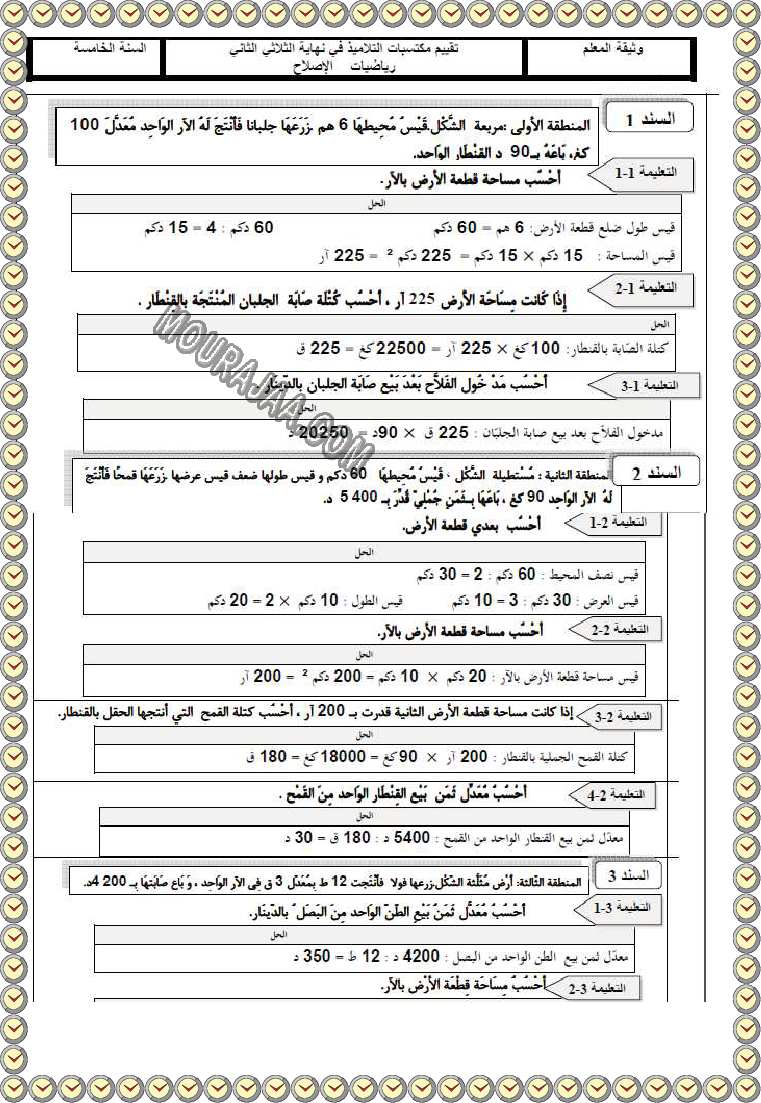 وثيقة المعلم
تقييم مكتسبات التلاميذ في نهاية الثلاثي الثاني
رياضيات الإصلاح
السنة الخامسة
السند 1
المنطقة الأولى :مربعة الشّكْل.قَيْسُ مُحِيطهَا 6 هم .زَرَعَهَا جلبانا فَأَنْتَجَ لَهُ الآر الوَاحِد مُعَدَّلَ 100
كغ، بَاعَهُ بـ90 د القِنْطَار الوَاحد.
التعليمة 1-1
أحْسُب مساحة قطعة الأرض بالآر.
الحل
قيس طول ضلع قطعة الأرض: 6 هم = 60 دكم 60 دكم : 4 = 15 دكم
قيس المساحة : 15 دكم × 15 دكم = 225 دكم ² = 225 آر
التعليمة 1-2
إِذَا كَانت مِسَاحَة الأَرض 225 آر ، أحْسُب كُتْلَة صَابَة الجلبان المُنْتَجَة بالقِنْطَار .
الحل
كتلة الصّابة بالقنطار: 100 كغ × 225 آر = 22500 كغ = 225 ق
التعليمة 1-3
أحْسُب مَدْ خُولِ الفَلاَّحِ بَعْدَ بَيْعِ صَابَة الجلبان بالدّينَار .
الحل
مدخول الفلاّح بعد بيع صابة الجلبّان : 225 ق × 90د = 20250 د
السند 2
المنطقة الثانية :: مُسْتطيلة الشّكْل ، قَيْسُ مُحِيطهَا 60 دكم و قيس طولها ضعف قيس عرضها .زَرَعَهَا قمحًا فَأَنْتَجَ
لَهُ الآر الوَاحِد 90 كغ ، بَاعَهَا بِـثَمَنٍ جُمْلِيّ قُدِّرَ بِـ 400 5 د.
التعليمة 2-1
أحْسُب بعدي قطعة الأرض.
الحل
قيس نصف المحيط : 60 دكم : 2 = 30 دكم
قيس العرض : 30 دكم : 3 = 10 دكم قيس الطول : 10 دكم × 2 = 20 دكم
التعليمة 2-2
أحْسُب مساحة قطعة الأرض بالآر.
الحل
قيس مساحة قطعة الأرض بالآر : 20 دكم × 10 دكم = 200 دكم ² = 200 آر
التعليمة 2-3
إذا كانت مساحة قطعة الأرض الثانية قدرت بـ 200 آر ، أحْسُب كتلة القمح التي أنتجها الحقل بالقنطار.
الحل
كتلة القمح الجملية بالقنطار : 200 آر × 90 كغ = 18000 كغ = 180 ق
التعليمة 2-4
أحْسُبْ مُعَدّل ثَمَن بَيْع القِنْطَار الوَاحد مِنَ القَمْح .
الحل
معدّل ثمن بيع القنطار الواحد من القمح : 5400 د : 180 ق = 30 د
السند 3
المنطقة الثّالثة: أرْض مُثَلّثة الشّكْل.زرعها فولا فأَنْتَجت 12 ط بِمُعَدّل 3 ق في الآر الوَاحِد ، وَ بَاع صَابَتهَا بِـ 200 4د.
التعليمة 3-1
أحْسُبْ مُعَدَّل ثَمَنَ بَيْعِ الطّنّ الوَاحد مِنَ البَصَل بالدّينَار.
الحل
معدّل ثمن بيع الطن الواحد من البصل : 4200 د : 12 ط = 350 د
التعليمة 3-2
أحْسُبْ مِسَاحَة قِطْعَة الأَرْض بالآر.
MOURAJAA.COM